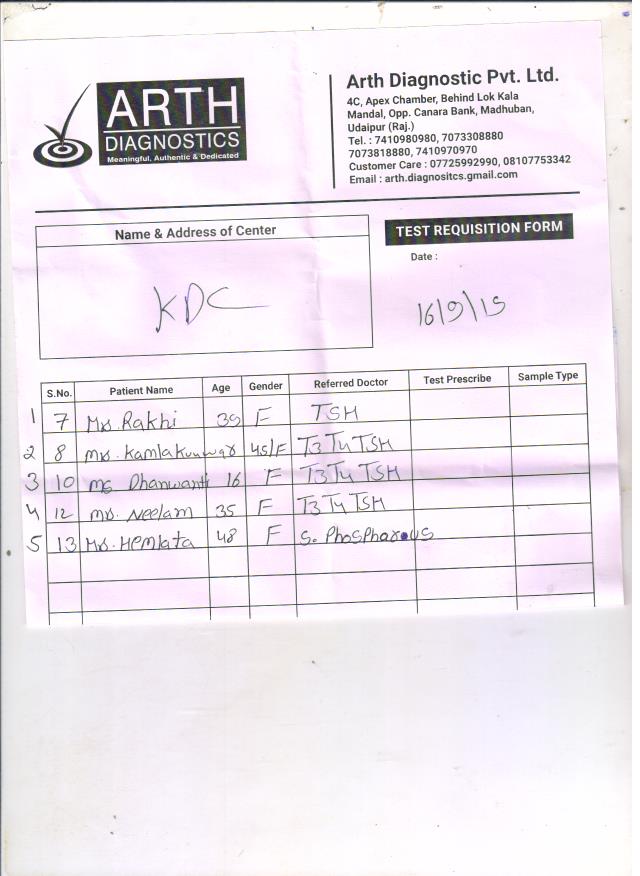 ARTH
DIAGNOSTICS
Meaningful, Authentic & Dedicated
Arth Diagnostic Pvt. Ltd.
4C, Apex Chamber, Behind Lok Kala
Mandal, Opp. Canara Bank, Madhuban,
Udaipur (Raj.)
Tel. : 7410980980, 7073308880
7073818880, 7410970970
Customer Care : 07725992990, 08107753342
Email : arth.diagnositcs.gmail.com
Name & Address of Center
KDC
TEST REQUISITION FORM
Date :
16/9/19
S.No. Patient Name Age Gender Referred Doctor Test Prescribe Sample Type
1 7 Mrs. Rakhi 39 F TSH
2 8 Mrs. Kamlakunwar 45/F T3 T4 TSH
3 10 Ms Dhanwanti 16 F T3 T4 TSH
4 12 Mrs. Neelam 35 F T3 T4 TSH
5 13 Mrs. Hemlata 48 F S. Phospharous